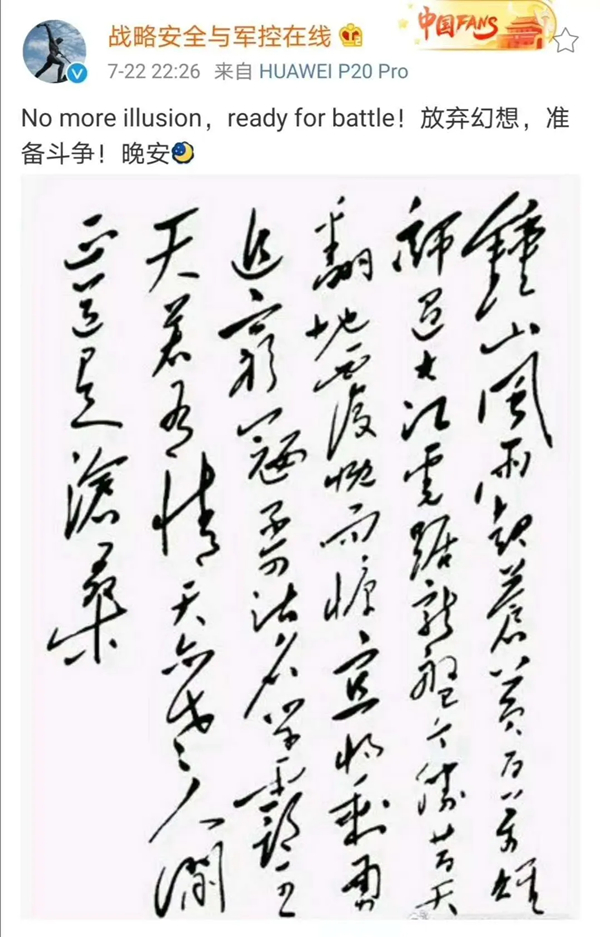 战略安全与军控在线
中国FANS
7-22 22:26 来自 HUAWEI P20 Pro
No more illusion，ready for battle！放弃幻想，准
备斗争！晚安
鍾山風雨起蒼黃百萬雄
師過大江虎踞龍盤今勝昔天
翻地覆慨而慷宜將剩勇
追窮寇不可沽名學霸王
天若有情天亦老人間
正道是滄桑